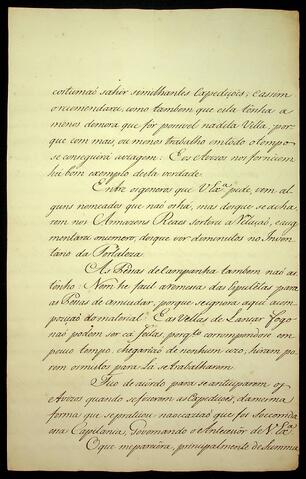 costumaõ sahir semilhantes Expediçoẽs; e assim
o recomendarei, como tambem que ella tenha a
menos demora que for possivel nadita Villa, por-
que com mais, ou menos trabalho em todo o tempo
se conseguirá a viagem: E os Avizos nos fornecem
hũ bom exemplo desta verdade.
Entre os generos que V. Ex.ª pede, vem al-
guns nomeados que naõ os há, mas do que se acha-
rem nos Armazens Reaes sorterei a Relaçaõ, e aug-
mentarei o numero, do que vir diminutos no Inven-
tario da Fortaleza.
As Peças de Campanha tambem naõ as
tenho: Nem he facil a remessa das Espoletas para
as Peças de amiudar, porque se ignora aqui a com-
pozição do material: E as Vellas de Lançar fogo
naõ podem ser cá feitas, porq̃
em pouco tempo, chegariaõ de nenhum uzo; hiram po-
rem os mistos para lá se trabalharem.
Fico de acordo para se anteciparem os
Avizos quando se fizerem as Expediçoẽs, da mesma
forma que se praticou na ocaziaõ que foi soccorrida
essa Capitania, Governando o Antecessor de V. Ex.ª
O que me parece, principalmente de summa